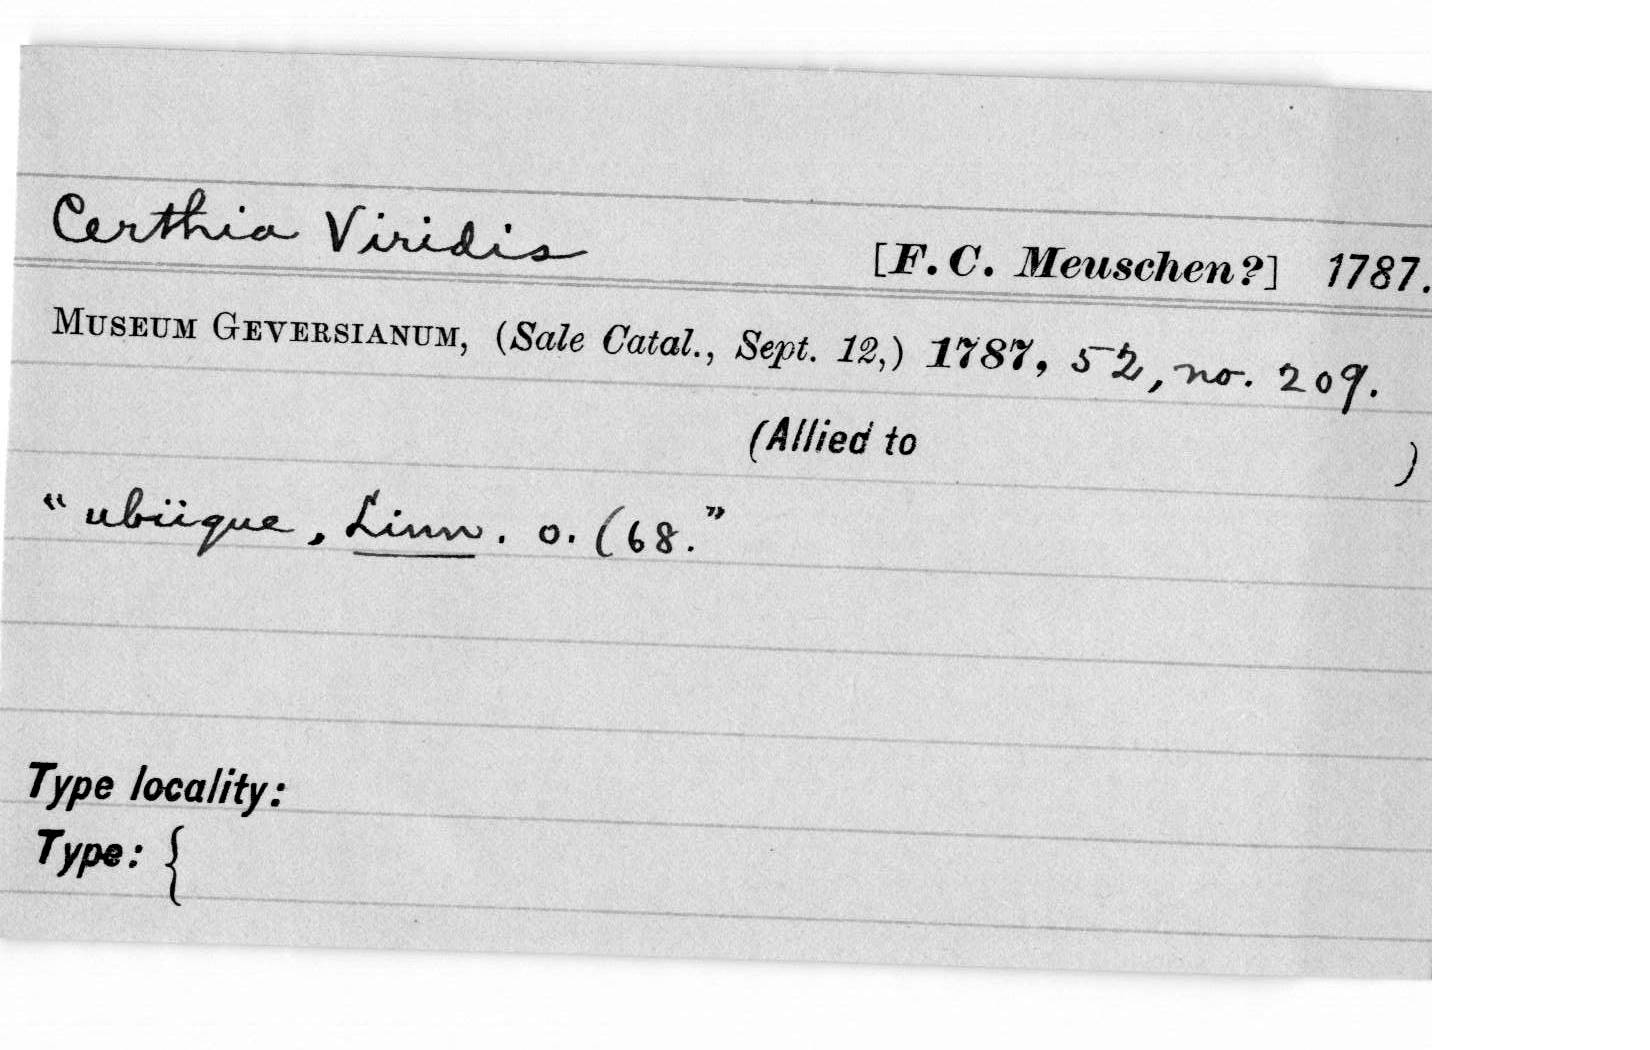 Certhia Viridis [F. C. Meuschen?] 1787.
MUSEUM GEVERSIANUM, (Sale Catal., Sept. 12,) 1787, 52, no. 209.
(Allied to )
“ubiique, Linn. o. (68.”
Type locality:
Type: {